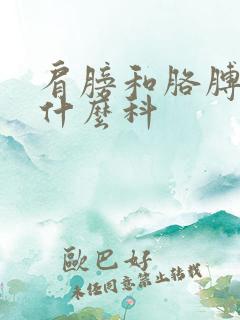 肩膀和胳膊
什麼科
歐巴好
未經同意禁止轉載